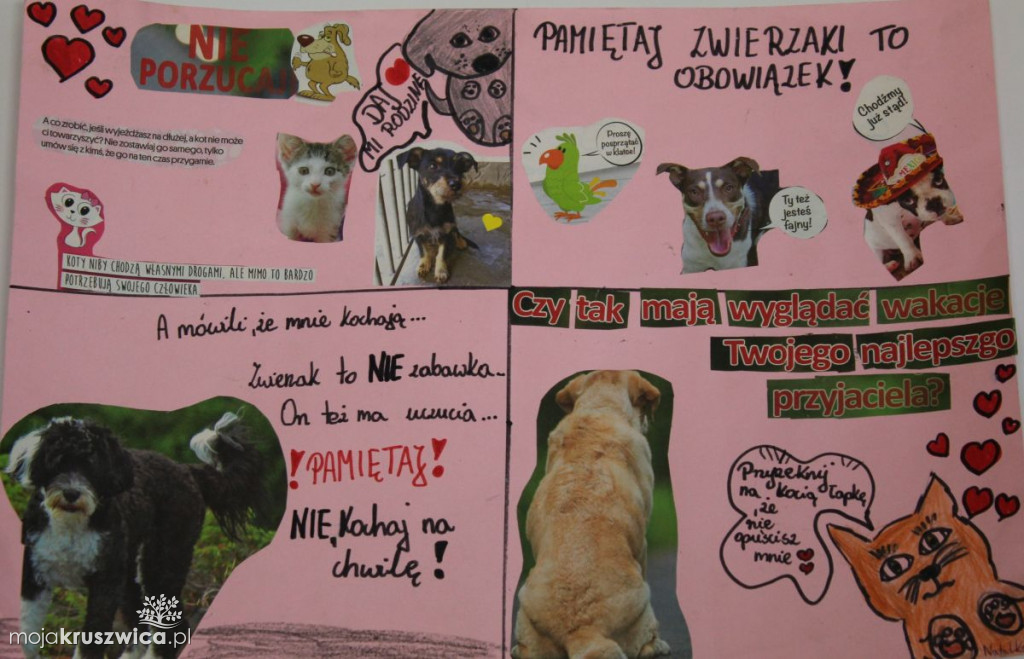 NIE
PORZUCAJ!
DAJ
MI RODZINĘ
A co zrobić, jeśli wyjeżdżasz na dłużej, a kot nie może
ci towarzyszyć? Nie zostawiaj go samego, tylko
umów się z kimś, że go na ten czas przygarnie.
KOTY NIBY CHODZĄ WŁASNYMI DROGAMI, ALE MIMO TO BARDZO
POTRZEBUJĄ SWOJEGO CZŁOWIEKA
PAMIĘTAJ ZWIERZAKI TO
OBOWIĄZEK!
Proszę
posprzątaj
w klatce!
Ty też
jesteś
fajny!
Chodźmy
już stąd!
A mówili, że mnie kochają...
Zwierzak to NIE zabawka...
On też ma uczucia...
!PAMIĘTAJ!
NIE, Kochaj na
chwilę!
Czy tak mają wyglądać wakacje
Twojego najlepszgo
przyjaciela?
Przyrzeknij
na kocią łapkę
, że
nie
opuścisz
mnie
mojakruszwica.pl